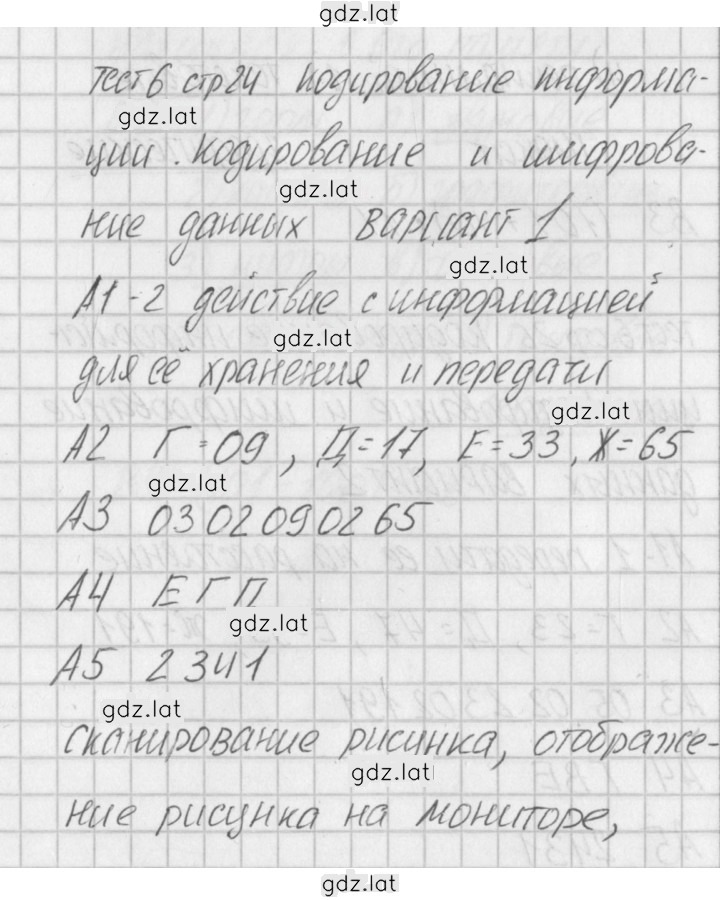 gdz.lat
Тест 6 стр 24 кодирование информа-
gdz.lat
ции. Кодирование и шифрова-
gdz.lat
ние данных вариант 1
gdz.lat
А1-2 действие с информацией
gdz.lat
для её хранения и передачи
gdz.lat
А2 Г=09, Д=17, Е=33, Ж=65
gdz.lat
А3 0302090265
А4 ЕГП
gdz.lat
А5 2341
gdz.lat
сканирование рисунка, отображе-
gdz.lat
ние рисунка на мониторе,
gdz.lat